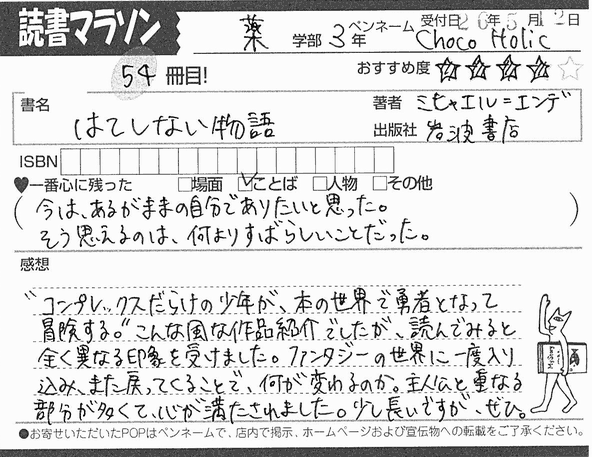 読書マラソン
薬 学部 3 年 ペンネーム Choco Holic 受付日26年5月12日
54 冊目!
おすすめ度 ★★★★☆
書名 はてしない物語
著者 ミヒャエル=エンデ
出版社 岩波書店
ISBN
♥一番心に残った □場面 ☑ことば □人物 □その他
(今は、あるがままの自分でありたいと思った。
そう思えるのは、何よりすばらしいことだった。)
感想
"コンプレックスだらけの少年が、本の世界で勇者となって
冒険する。"こんな風な作品紹介でしたが、読んでみると
全く異なる印象を受けました。ファンタジーの世界に一度入り
込み、また戻ってくることで、何が変わるのか。主人公と重なる
部分が多くて、心が満たされました。少し長いですが、ぜひ。
●お寄せいただいたPOPはペンネームで、店内で掲示、ホームページおよび宣伝物への転載をご了承ください。